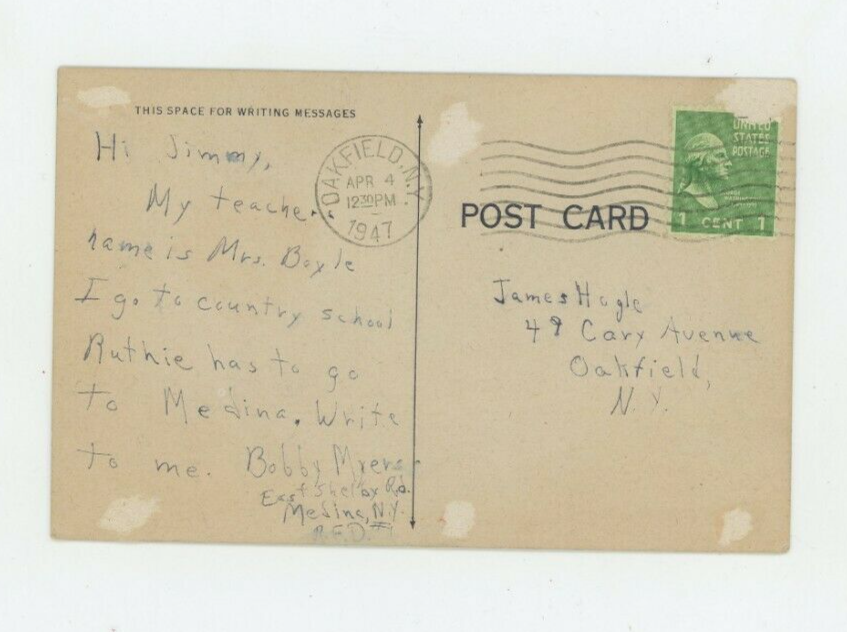 THIS SPACE FOR WRITING MESSAGES
Hi Jimmy,
My teacher
name is Mrs. Boyle
I go to country school
Ruthie has to go
to Medina. Write
to me. Bobby Myers
East Shelby Rd.
Medina, N.Y.
R.F.D. #1
OAKFIELD, N.Y.
APR 4
1230 PM
1947
UNITED
STATES
POSTAGE
1 CENT 1
POST CARD
James Hogle
49 Cary Avenue
Oakfield,
N.Y.